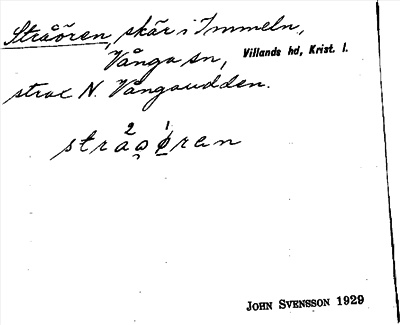 Stråören, skär i Immeln,
Vånga sn, Villands hd, Krist. l.
strax N. Vångaudden.
JOHN SVENSSON 1929